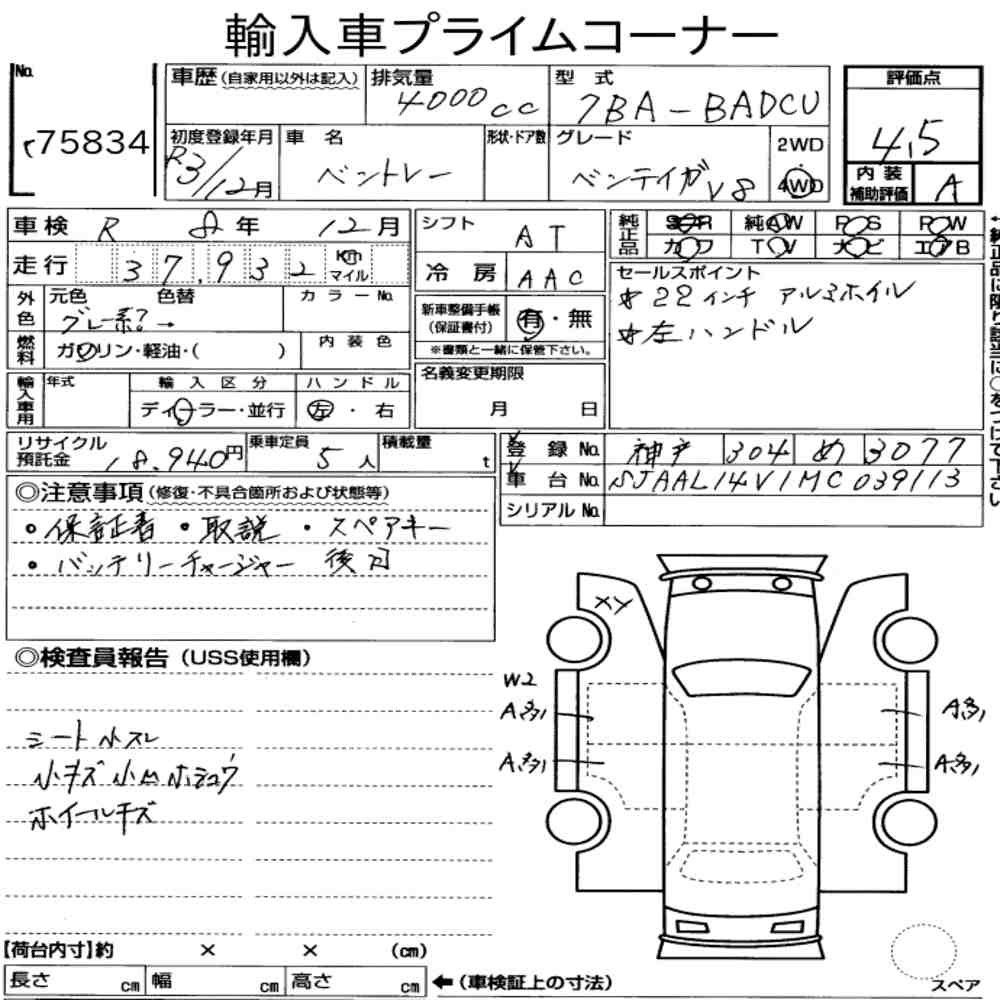 輸入車プライムコーナー
No. 75834
車歴(自家用以外は記入)
排気量 4000cc
型式 7BA-BADCU
評価点 4.5
初度登録年月 R3/12月
車名 ベントレー
形状・ドア数
グレード ベンテイガV8
2WD
4WD
内装補助評価 A
車検 R 8年 12月
走行 37,932 Km マイル
シフト AT
冷房 AAC
純正品 S・R 純AW P・S P・W
カワ TV ナビ エアB
外色 元色 色替 カラーNo.
グレー系?→
燃料 ガソリン・軽油・( )
内装色
新車整備手帳(保証書付) 有・無
※書類と一緒に保管下さい。
セールスポイント
☆22インチ アルミホイル
☆左ハンドル
輸入車用 年式 輸入区分 ハンドル
ディーラー・並行 左・右
名義変更期限
月 日
リサイクル預託金 18,940円
乗車定員 5人
積載量 t
登録No. 神戸 304 め 3077
車台No. SJAAL14V1MC039113
シリアルNo.
◎注意事項(修復・不具合箇所および状態等)
・保証書 ・取説 ・スペアキー
・バッテリーチャージャー 後日
◎検査員報告(USS使用欄)
シート小スレ
小キズ小凹ホシュウ
ホイールキズ
XY
W2
A多1
A多1
A多1
A多1
【荷台内寸】約 × × (cm)
長さ cm 幅 cm 高さ cm
←(車検証上の寸法)
スペア